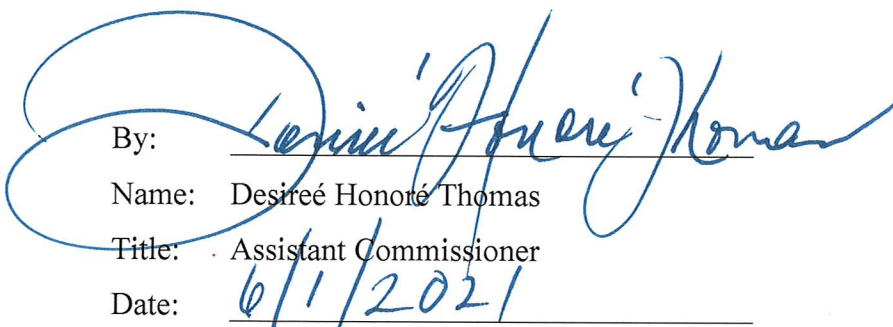 By: Desireé Honoré Thomas
Name: Desireé Honoré Thomas
Title: Assistant Commissioner
Date: 6/1/2021